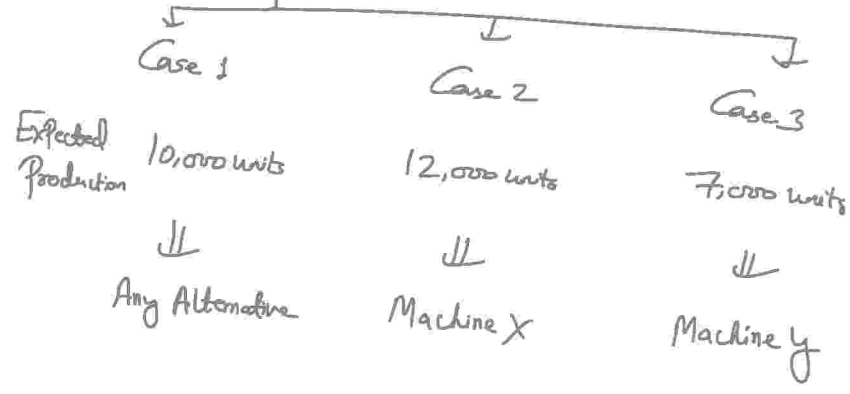 Case 1
Case 2
Case 3
Expected Production
10,000 units
12,000 units
7,000 units
Any Alternative
Machine X
Machine Y